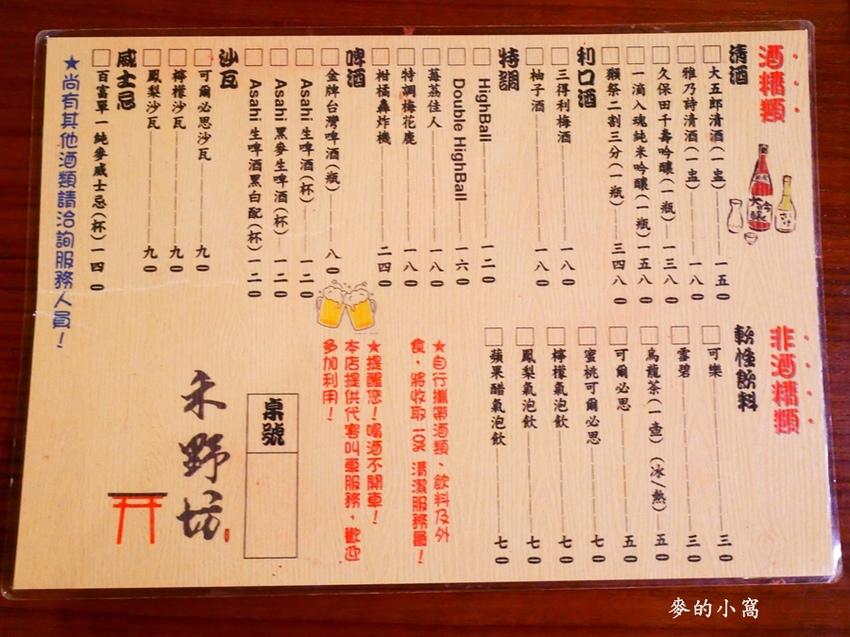 酒精類
清酒
大五郎清酒(一盅) 一五〇
雅乃詩清酒(一盅) 一八〇
久保田千壽吟釀(一瓶) 一三八〇
一滴入魂純米吟釀(一瓶) 一五八〇
獺祭二割三分(一瓶) 三四八〇
利口酒
三得利梅酒 一八〇
柚子酒 一八〇
特調
HighBall 一二〇
Double HighBall 一六〇
莓荔佳人 一八〇
特調梅花鹿 一八〇
柑橘轟炸機 二四〇
啤酒
金牌台灣啤酒(瓶) 八〇
Asahi 生啤酒(杯) 一二〇
Asahi 黑麥生啤酒(杯) 一二〇
Asahi 生啤酒黑白配(杯) 一二〇
沙瓦
可爾必思沙瓦 九〇
檸檬沙瓦 九〇
鳳梨沙瓦 九〇
威士忌
百富單一純麥威士忌(杯) 一四〇
★尚有其他酒類請洽詢服務人員!
非酒精類
軟性飲料
可樂 三〇
雪碧 三〇
烏龍茶(一壺)(冰/熱) 五〇
可爾必思 五〇
蜜桃可爾必思 七〇
檸檬氣泡飲 七〇
鳳梨氣泡飲 七〇
蘋果醋氣泡飲 七〇
★自行攜帶酒類、飲料及外
食,將收取10% 清潔服務費!
★提醒您!喝酒不開車!
本店提供代客叫車服務,歡迎
多加利用!
桌號
禾野坊
麥的小窩